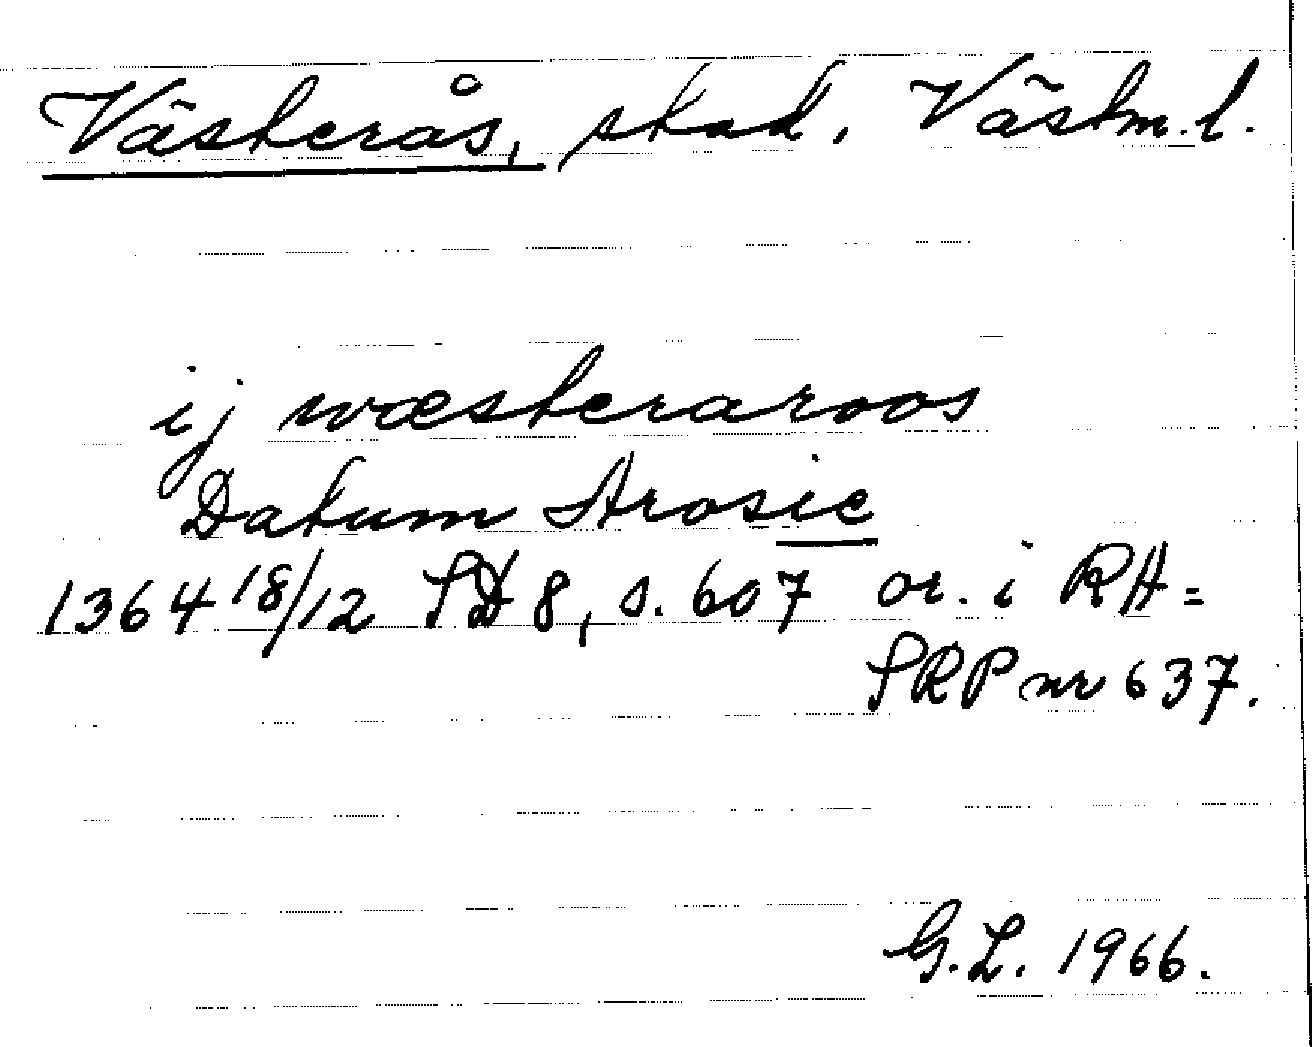 Västerås, stad, Västm.l.
ij wæsteraroos
Datum Arosie
1364 18/12 SD 8, s. 607 or. i RA =
SRP nr 637.
G.L. 1966.